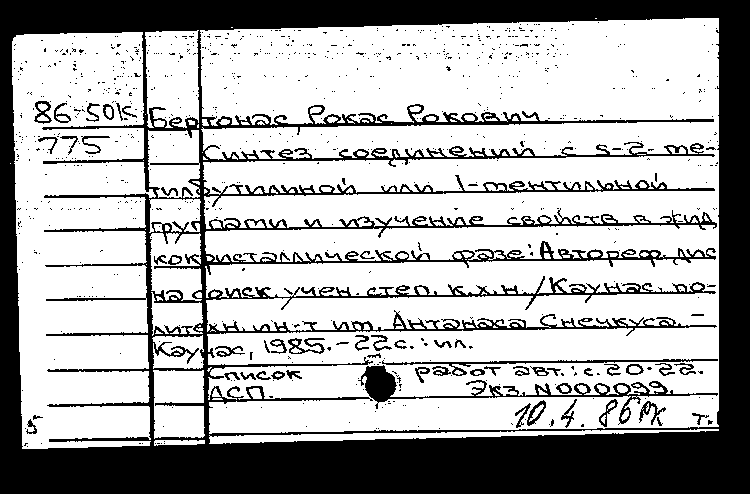 86-50К Бертонас, Рокас Рокович
775 Синтез соединений с s-2-ме-
тилбутилиной или 1-ментильной
группами и изучение свойств в жид
кокристаллической фазе: Автореф. дис
на соиск. учен. степ. к.х.н. / Каунас. по-
литехн. ин-т им. Антанаса Снечкуса. -
Каунас, 1985. - 22 с. : ил.
Список работ авт.: с. 20-22.
ДСП. Экз. N000099.
10.4.86
5 т.